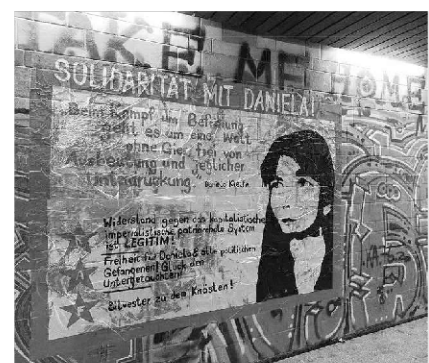 TAKE ME HOME
SOLIDARITÄT MIT DANIELA!
"Beim Kampf um Befreiung
geht es um eine Welt
ohne Gier, frei von
Ausbeutung und jeglicher
Unterdrückung." Daniela Klette
Widerstand gegen das kapitalistische
imperialistische patriarchale System
ist LEGITIM!
Freiheit für Daniela & alle politischen
Gefangenen! Glück den
Untergetauchten!
Silvester zu den Knästen!